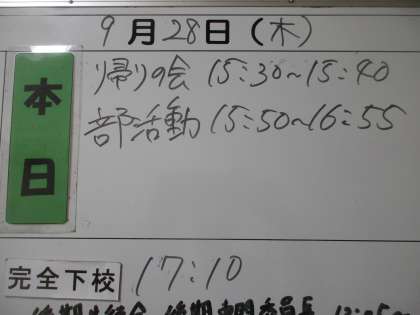 9月28日(木)
本日
帰りの会 15:30~15:40
部活動 15:50~16:55
完全下校 17:10